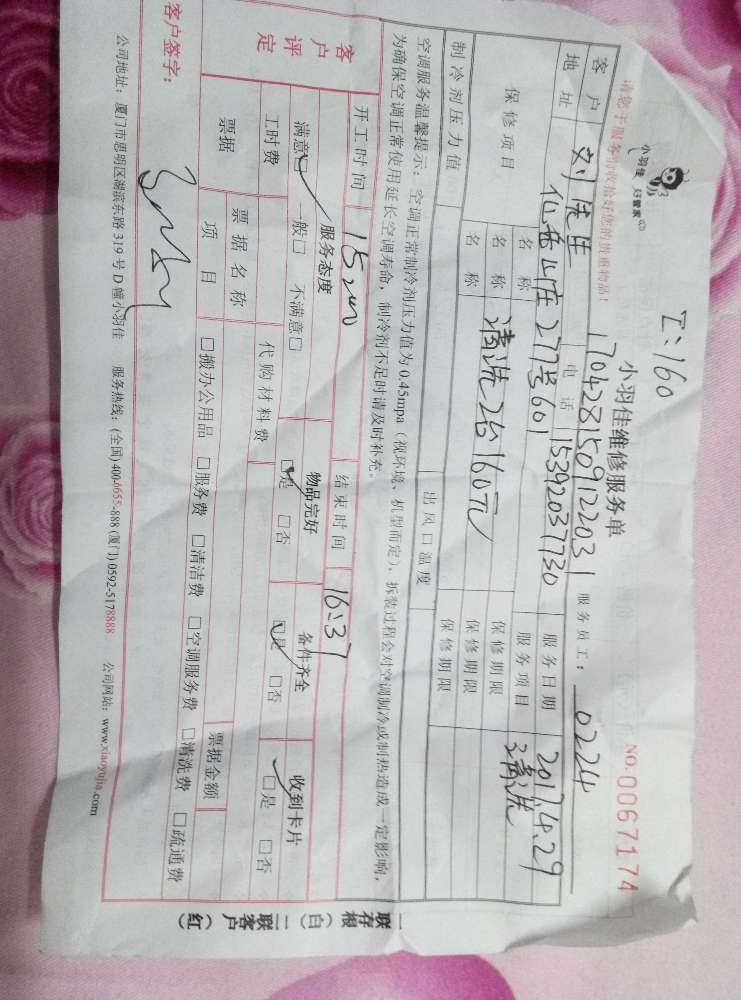 Z:160
小羽佳 好管家
小羽佳维修服务单
NO:0067174
请您于服务前收拾好您的贵重物品!
1704281509122031 服务员工: 0224
客户 刘先生 电话 15392037730 服务日期 2017.4.29
地址 仙岳山庄277号601 服务项目 清洗
保修项目 名称 保修期限
名称 清洗2台160元 保修期限
名称 保修期限
制冷剂压力值 出风口温度
空调服务温馨提示:空调正常制冷剂压力值为0.45mpa(视环境、机型而定),拆装过程会对空调制冷或制热造成一定影响,
为确保空调正常使用延长空调寿命,制冷剂不足时请及时补充。
开工时间 15:00 结束时间 16:37
客户评定 服务态度 物品完好 备件齐全 收到卡片
满意□ 一般□ 不满意□ □是 □否 □是 □否 □是 □否
工时费 代购材料费
票据 票据名称 票据金额
项目 □搬办公用品 □服务费 □清洁费 □空调服务费 □清洗费 □疏通费
客户签字:
公司地址:厦门市思明区湖滨东路319号D幢小羽佳 服务热线:(全国)400-6655-888 (厦门)0592-5178888 公司网站:www.xiaoyujia.com
一联存根(白) 二联客户(红)